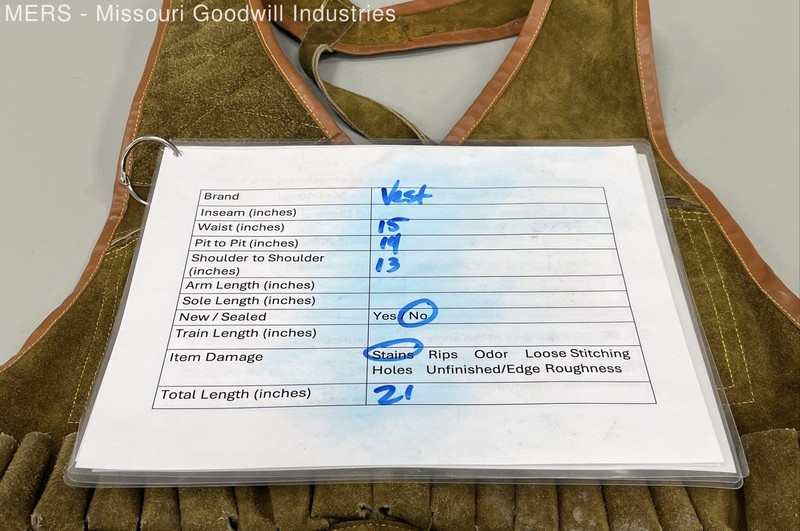 MERS - Missouri Goodwill Industries
Brand Vest
Inseam (inches)
Waist (inches) 15
Pit to Pit (inches) 19
Shoulder to Shoulder
(inches) 13
Arm Length (inches)
Sole Length (inches)
New / Sealed Yes / No
Train Length (inches)
Item Damage Stains Rips Odor Loose Stitching
Holes Unfinished/Edge Roughness
Total Length (inches) 21